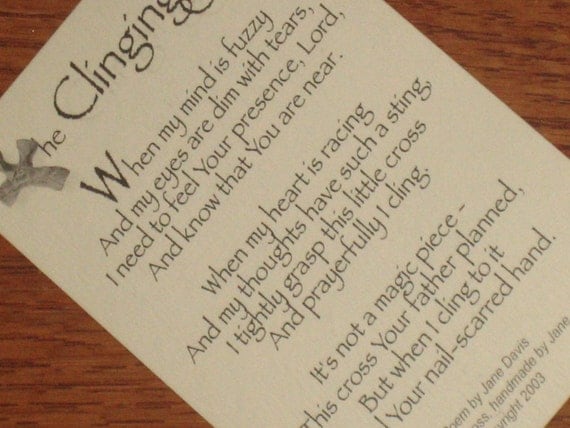 he Clinging
When my mind is fuzzy
And my eyes are dim with tears,
I need to feel Your presence, Lord,
And know that You are near.
When my heart is racing
And my thoughts have such a sting,
I tightly grasp this little cross
And prayerfully I cling.
It's not a magic piece -
This cross Your Father planned,
But when I cling to it
Your nail-scarred hand.
Poem by Jane Davis
handmade by Jane
2003